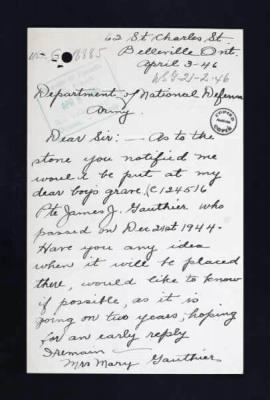 62 St. Charles St.
Belleville Ont.
April 3-46
Department of National Defence
Army.
Dear Sir:— As to the
stone you notified me
would be put at my
dear boys grave, C124516
Pte James J. Gauthier who
passed on Dec 21st 1944.
Have you any idea
when it will be placed
there, would like to know
if possible, as it is
going on two years, hoping
for an early reply
I remain —
Mrs Mary Gauthier